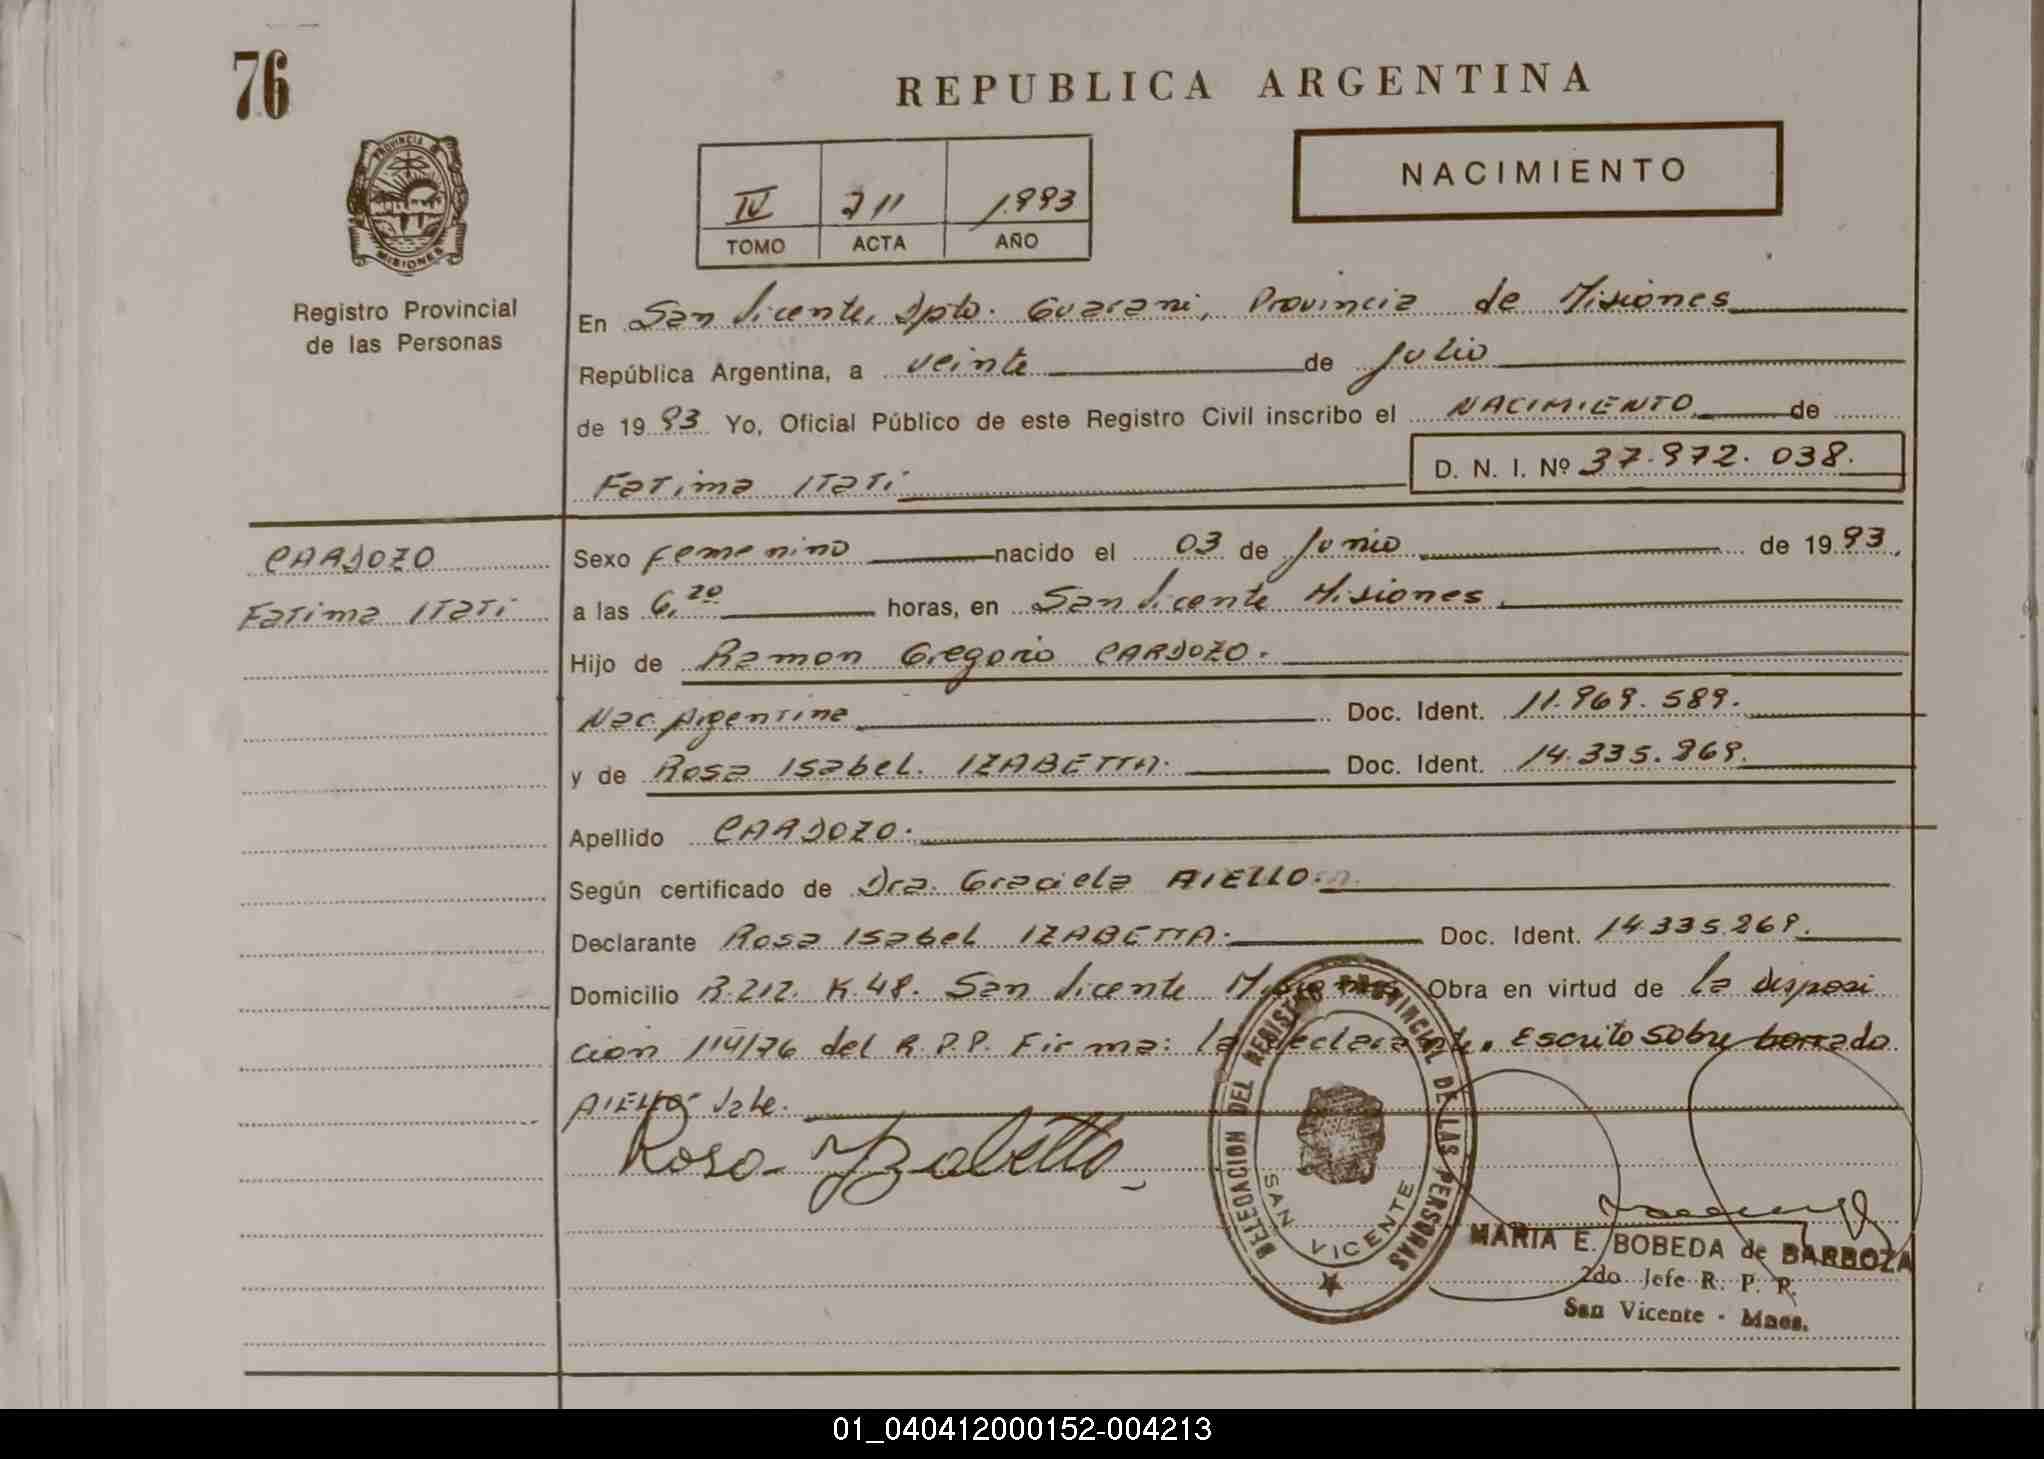 76
REPUBLICA ARGENTINA
PROVINCIA DE
MISIONES
Registro Provincial
de las Personas
IV 711 1993
TOMO ACTA AÑO
NACIMIENTO
En San Vicente, Dpto. Guarani, Provincia de Misiones
República Argentina, a veinte de Julio
de 1993 Yo, Oficial Público de este Registro Civil inscribo el NACIMIENTO de
Fatima Itati D. N. I. Nº 37.972.038.
CARDOZO
Fatima Itati
Sexo Femenino nacido el 03 de Junio de 1993,
a las 6,20 horas, en San Vicente Misiones
Hijo de Ramon Gregorio CARDOZO.
Nac. Argentina Doc. Ident. 11.969.589.
y de Rosa Isabel. IZABETTA. Doc. Ident. 14.335.269.
Apellido CARDOZO.
Según certificado de Dra. Graciela AIELLO.
Declarante Rosa Isabel IZABETTA. Doc. Ident. 14.335.269.
Domicilio R.212. K.48. San Vicente Misiones Obra en virtud de la disposi
cion 114/76 del R.P.P. Firma: la declarante. Escrito sobre borrado
AIELLO Vale.
Rosa Yzabetta
DELEGACION DEL REGISTRO PROVINCIAL DE LAS PERSONAS
SAN VICENTE
MARIA E. BOBEDA de BARBOZA
2do Jefe R. P. P.
San Vicente - Mnes.
01_040412000152-004213